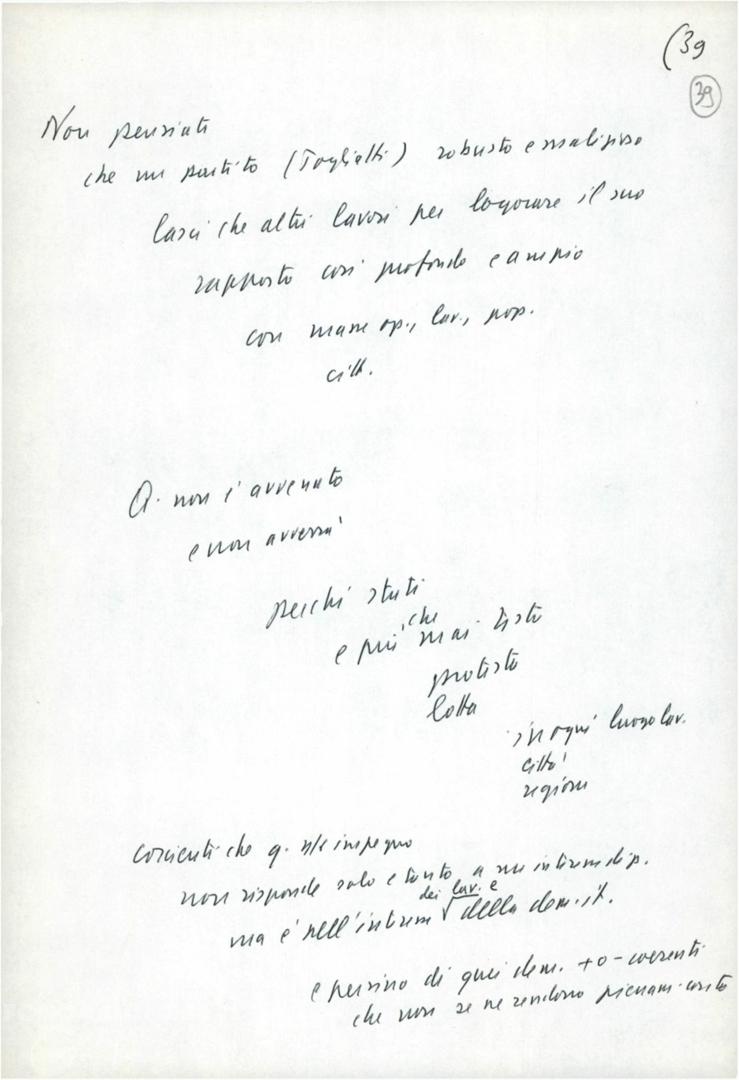 (39
39
Non pensiate
che un partito (Togliatti) robusto e
lasci che altri lavori per logorare il suo
rapporto così profondo e ampio
con masse op., lav., pop.
citt.
Q. non è avvenuto
e non avverrà
perché stati
che
e più mai testo
protesto
lotta
in ogni luogo lav.
città
regione
coscienti che q. n/s impegno
non risponde solo e tanto a un interesse di p.
dei lav. e
ma è nell'interesse della dem. it.
e persino di quei dem. + o - coerenti
che non se ne rendono pienam. conto